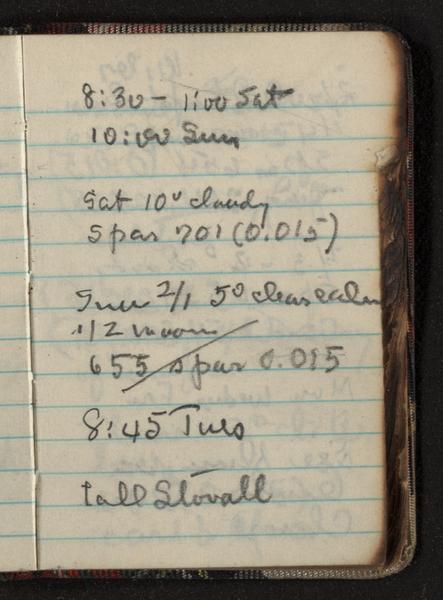 8:30 - 1:00 Sat
10:00 Sun
Sat 10° cloudy
Spar 701 (0.015)
Sun 2/1 5° clear calm
1/2 moon
655 spar 0.015
8:45 Tues
Call Stovall